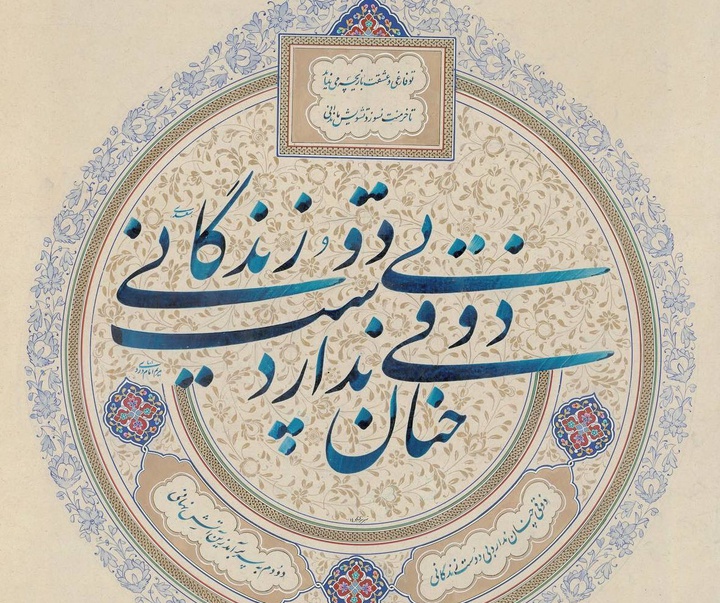 تو فارغی و عشقت بازیچه می نماید
تا خرمنت نسوزد تشویش ما ندانی
ذوقی چنان ندارد بی دوست زندگانی
ذوقی چنان ندارد بی دوست زندگانی
دودم به سر برآمد زین آتش نهانی